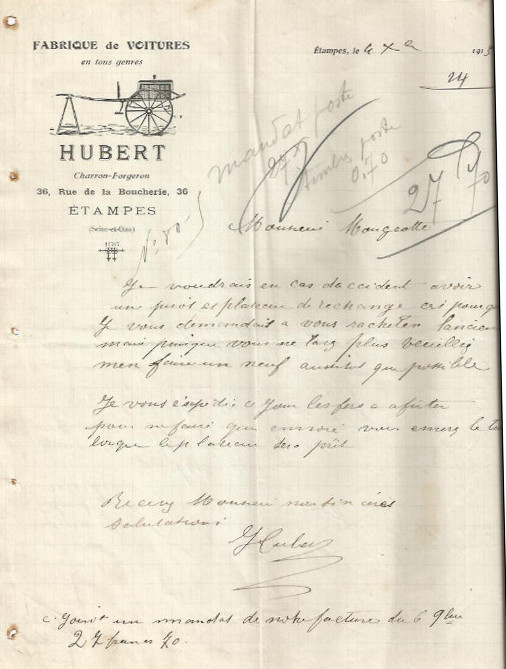 FABRIQUE de VOITURES
en tous genres
HUBERT
Charron-Forgeron
36, Rue de la Boucherie, 36
ÉTAMPES
(Seine-et-Oise)
Étampes, le 4 Xbre 191
24
mandat poste
timbre poste
0.70
27 70
Monsieur Mougeotte
Je voudrais en cas daccident avoir
un pivot et plateau de rechange cest pourquoi
Je vous demandait a vous racheter lancien
mais puisque vous ne lavez plus veuillez
men faire un neuf aussitot que possible
Je vous expedie ce jour les fers a affuter
pour ne faire qun envoi vous enverez le tout
lorque le plateau sera prêt
Recevez Monsieur nos sincères
salutations
Hubert
c. Joint un mandat de notre facture du 6 9bre
27 francs 70.